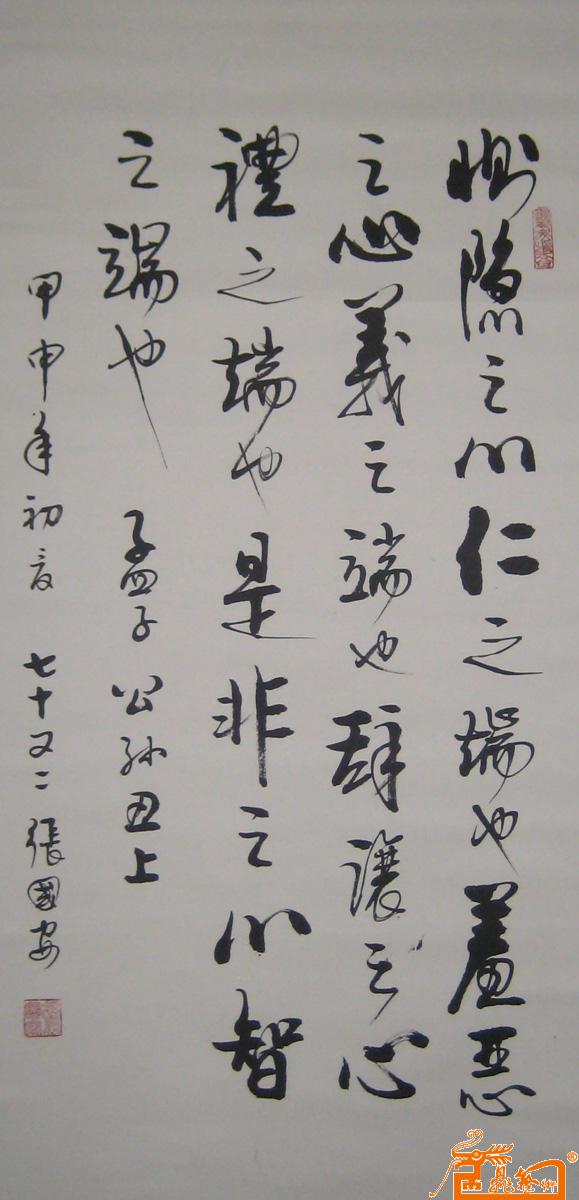 惻隱之心仁之端也羞惡
之心義之端也辭讓之心
禮之端也是非之心智
之端也 孟子公孫丑上
甲申年初夏 七十又二 張國安